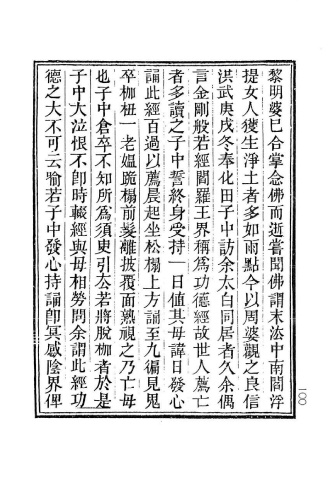 黎明婆已合掌念佛而逝嘗聞佛謂末法中南閻浮
提女人獲生淨土者多如雨點今以周婆觀之良信
洪武庚戌冬奉化田子中訪余太白同居者久余偶
言金剛般若經閻羅王界稱爲功德經故世人薦亡
者多讀之子中誓終身受持一日値其母諱日發心
誦此經百過以薦晨起坐松榻上方誦至九徧見鬼
卒枷杻一老媪跪榻前髮離披覆面熟視之乃亡母
也子中倉卒不知所爲須臾引去若將脫枷者於是
子中大泣恨不卽時輟經與母相勞問余謂此經功
德之大不可云喻若子中發心持誦卽冥感陰界俾
一〇〇